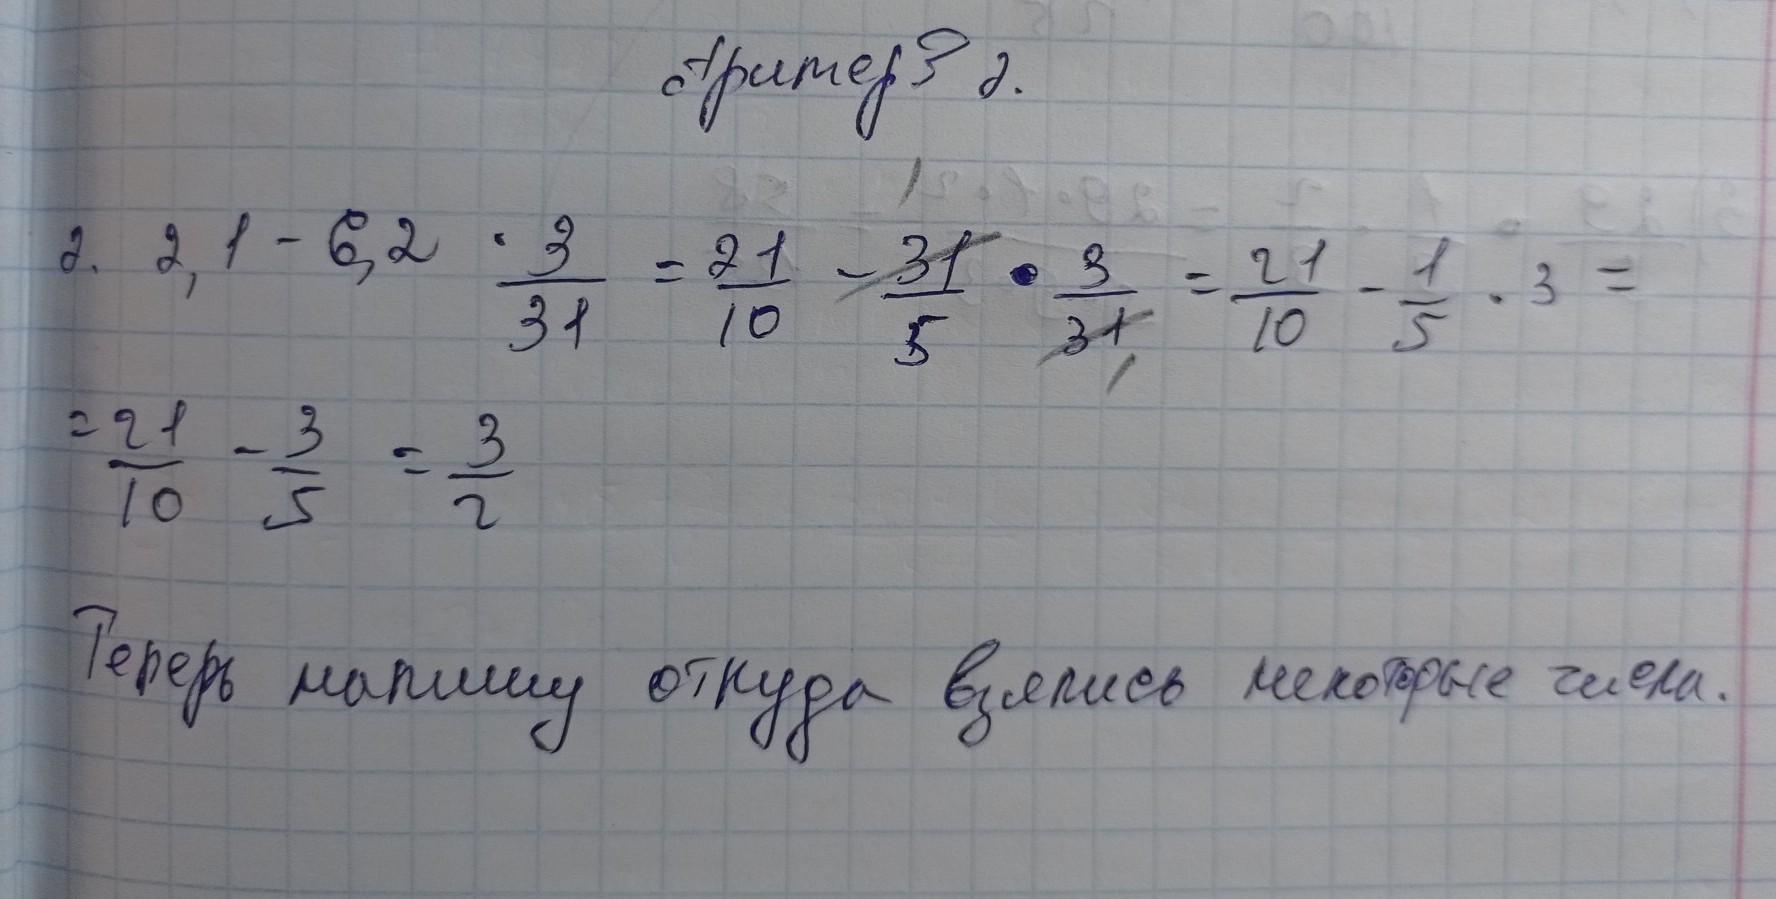 Пример 2.
2. 2,1 - 6,2 · 3/31 = 21/10 - 31/5 · 3/31 = 21/10 - 1/5 · 3 =
= 21/10 - 3/5 = 3/2
Теперь напишу откуда взялись некоторые числа.